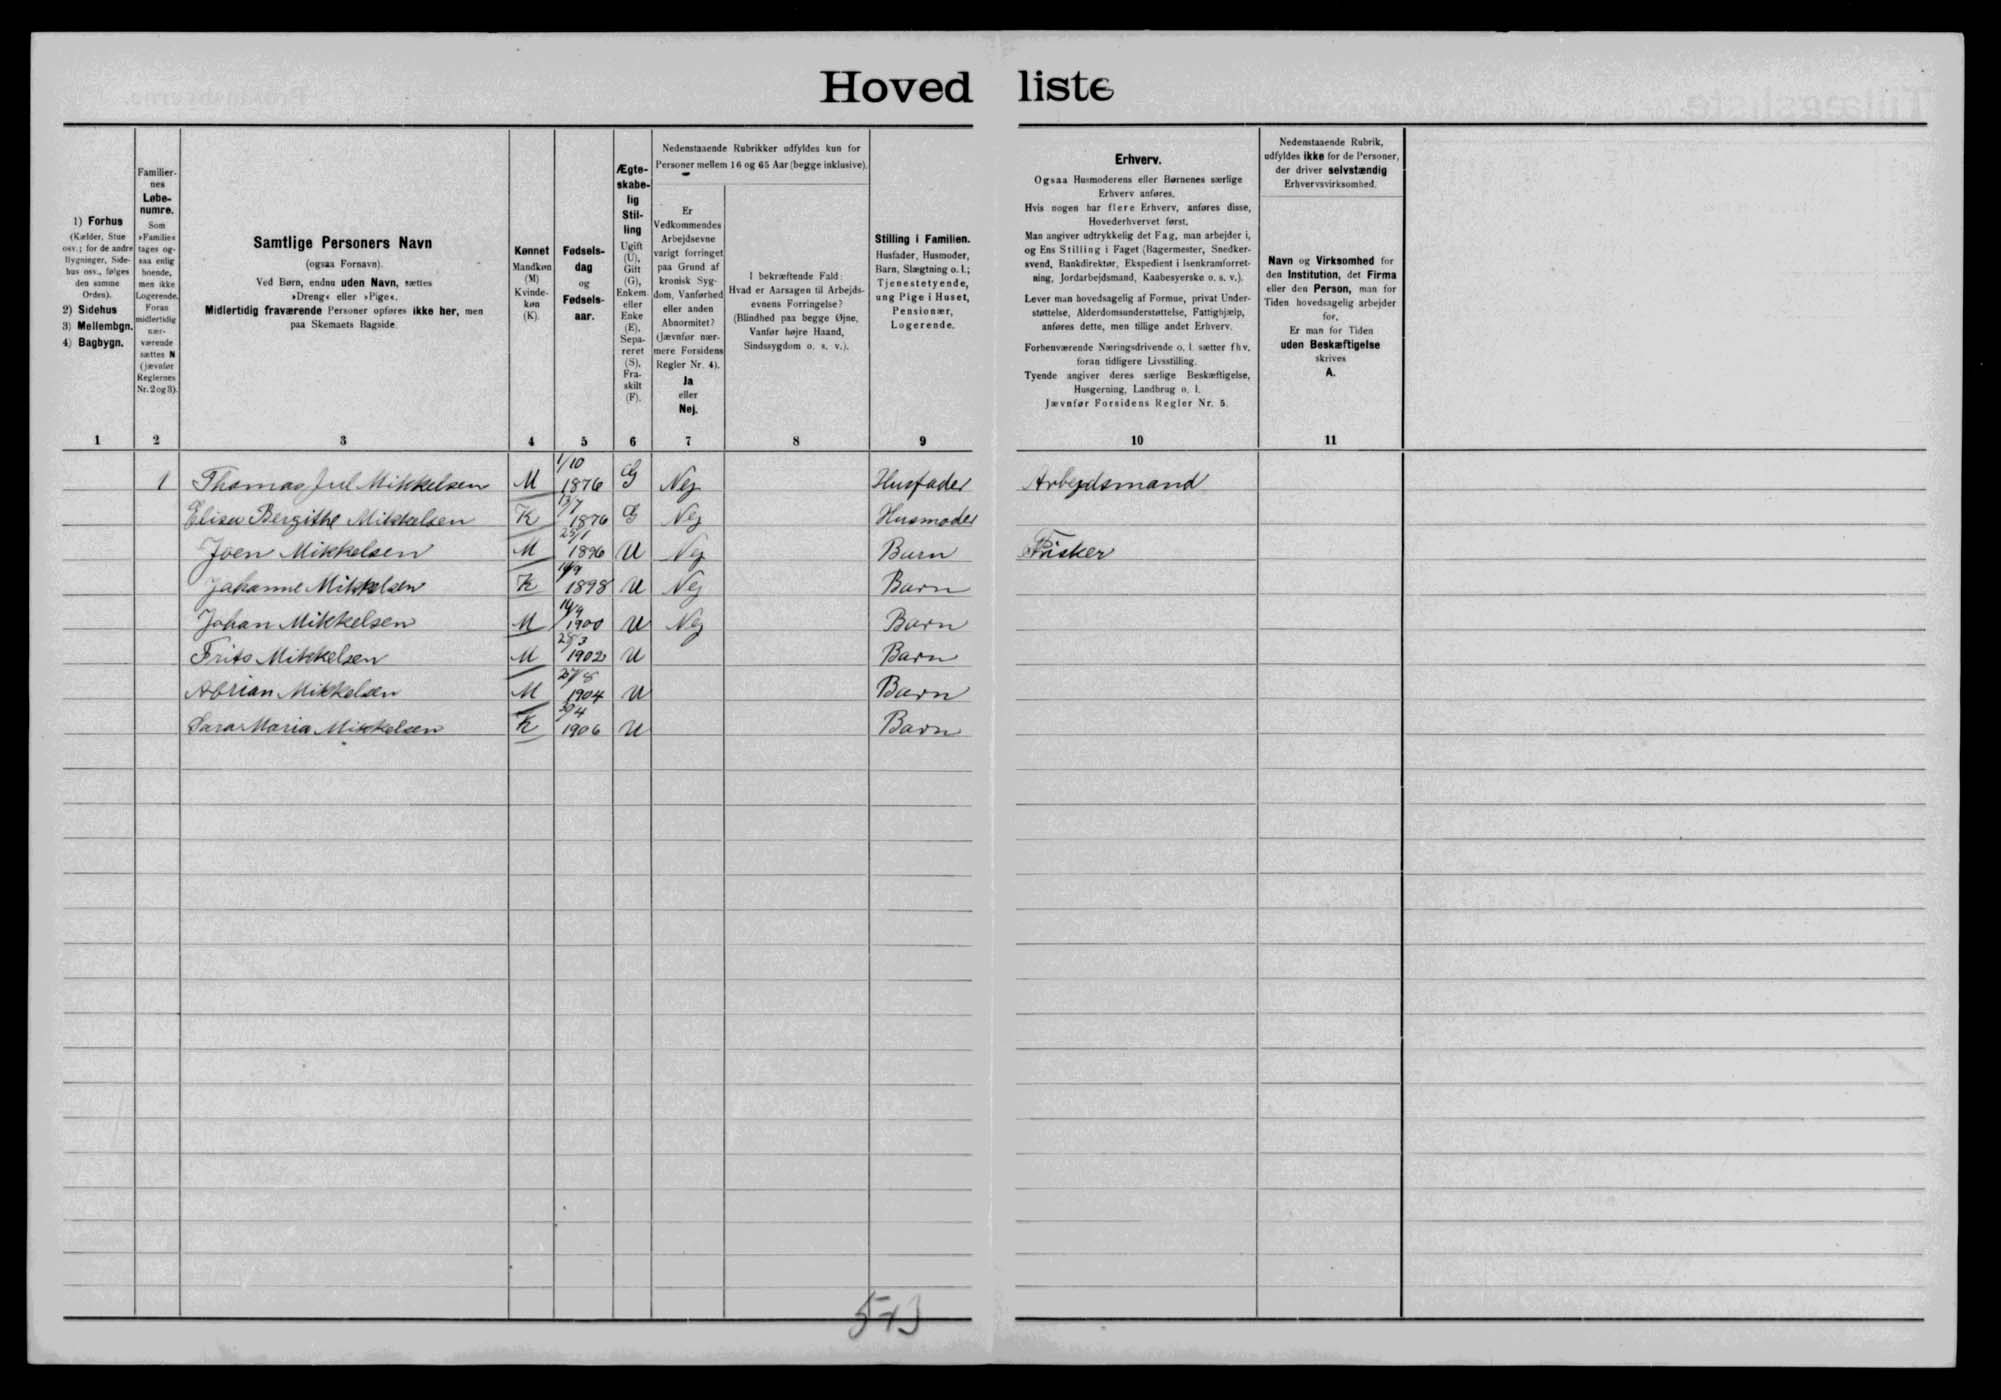 Hovedliste
1) Forhus
(Kælder, Stue
osv.; for de andre
Bygninger, Side-
hus osv., følges
den samme
Orden).
2) Sidehus
3) Mellembgn.
4) Bagbygn.
1
Familier-
nes
Løbe-
numre.
Som
»Familie«
tages og-
saa enlig
boende,
men ikke
Logerende.
Foran
midlertidig
nær-
værende
sættes N
(jævnfør
Reglernes
Nr. 2 og 3).
2
Samtlige Personers Navn
(ogsaa Fornavn).
Ved Børn, endnu uden Navn, sættes
»Dreng« eller »Pige«.
Midlertidig fraværende Personer opføres ikke her, men
paa Skemaets Bagside.
3
Kønnet
Mandkøn
(M)
Kvinde-
køn
(K).
4
Fødsels-
dag
og
Fødsels-
aar.
5
Ægte-
skabe-
lig
Stil-
ling
Ugift
(U),
Gift
(G),
Enkem.
eller
Enke
(E),
Sepa-
reret
(S),
Fra-
skilt
(F).
6
Nedenstaaende Rubrikker udfyldes kun for
Personer mellem 16 og 65 Aar (begge inklusive).
Er
Vedkommendes
Arbejdsevne
varigt forringet
paa Grund af
kronisk Syg-
dom, Vanførhed
eller anden
Abnormitet?
(Jævnfør nær-
mere Forsidens
Regler Nr. 4).
Ja
eller
Nej.
7
I bekræftende Fald:
Hvad er Aarsagen til Arbejds-
evnens Forringelse?
(Blindhed paa begge Øjne,
Vanfør højre Haand,
Sindssygdom o. s. v.).
8
Stilling i Familien.
Husfader, Husmoder,
Barn, Slægtning o. l.;
Tjenestetyende,
ung Pige i Huset,
Pensionær,
Logerende.
9
Erhverv.
Ogsaa Husmoderens eller Børnenes særlige
Erhverv anføres.
Hvis nogen har flere Erhverv, anføres disse,
Hovederhvervet først.
Man angiver udtrykkelig det Fag, man arbejder i,
og Ens Stilling i Faget (Bagermester, Snedker-
svend, Bankdirektør, Ekspedient i Isenkramforret-
ning, Jordarbejdsmand, Kaabesyerske o. s. v.).
Lever man hovedsagelig af Formue, privat Under-
støttelse, Alderdomsunderstøttelse, Fattighjælp,
anføres dette, men tillige andet Erhverv.
Forhenværende Næringsdrivende o. l. sætter fhv.
foran tidligere Livsstilling.
Tyende angiver deres særlige Beskæftigelse,
Husgerning, Landbrug o. l.
Jævnfør Forsidens Regler Nr. 5.
10
Nedenstaaende Rubrik,
udfyldes ikke for de Personer,
der driver selvstændig
Erhvervsvirksomhed.
Navn og Virksomhed for
den Institution, det Firma
eller den Person, man for
Tiden hovedsagelig arbejder
for.
Er man for Tiden
uden Beskæftigelse
skrives
A.
11
1 Thomas Jul Mikkelsen M 1/10 1876 G Nej Husfader Arbejdsmand
Elisa Bergithe Mikkelsen K 13/7 1876 G Nej Husmoder
Joen Mikkelsen M 25/1 1896 U Nej Barn Fisker
Johanne Mikkelsen K 1898 U Nej Barn
Johan Mikkelsen M 14/9 1900 U Nej Barn
Frits Mikkelsen M 28/3 1902 U Barn
Abrian Mikkelsen M 1904 U Barn
Sara Maria Mikkelsen K 30/4 1906 U Barn